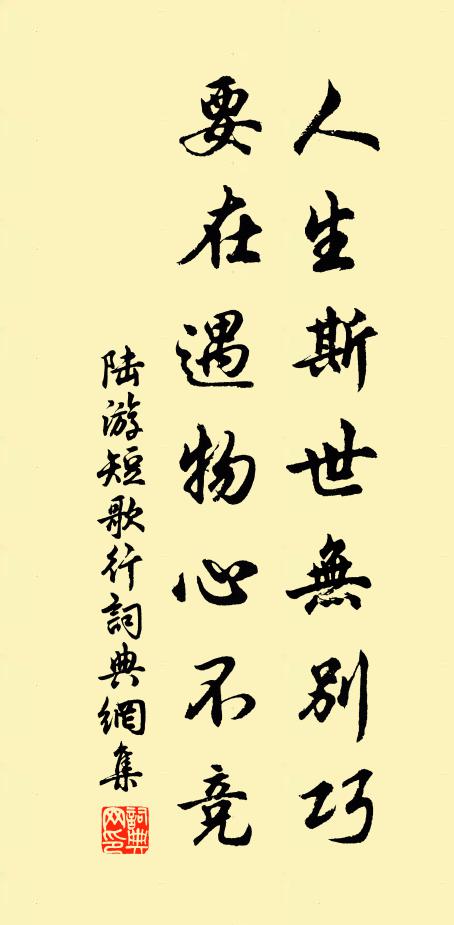 人生斯世無別巧
要在遇物心不競
陸游短歌行詞典網集
詞典網印